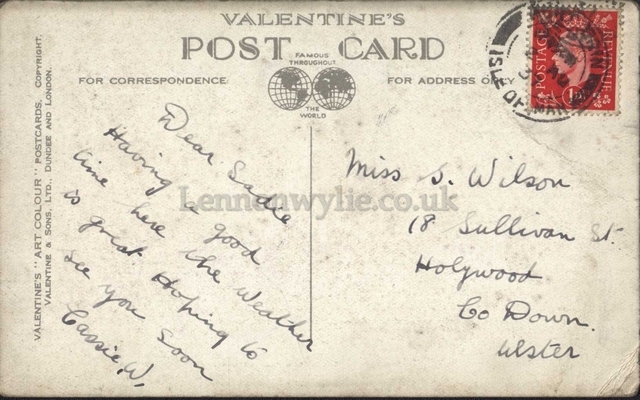 VALENTINE'S
POST CARD
FAMOUS
THROUGHOUT
THE
WORLD
FOR CORRESPONDENCE
FOR ADDRESS ONLY
VALENTINE'S "ART COLOUR" POSTCARDS. COPYRIGHT.
VALENTINE & SONS, LTD., DUNDEE AND LONDON.
Dear Sadie
Having a good
time here the weather
is great Hoping to
see you soon
Cassie. W.
Miss S. Wilson
18 Sullivan St.
Holywood
Co Down.
Ulster
POSTAGE
REVENUE
ISLE OF MAN
Lennonwylie.co.uk